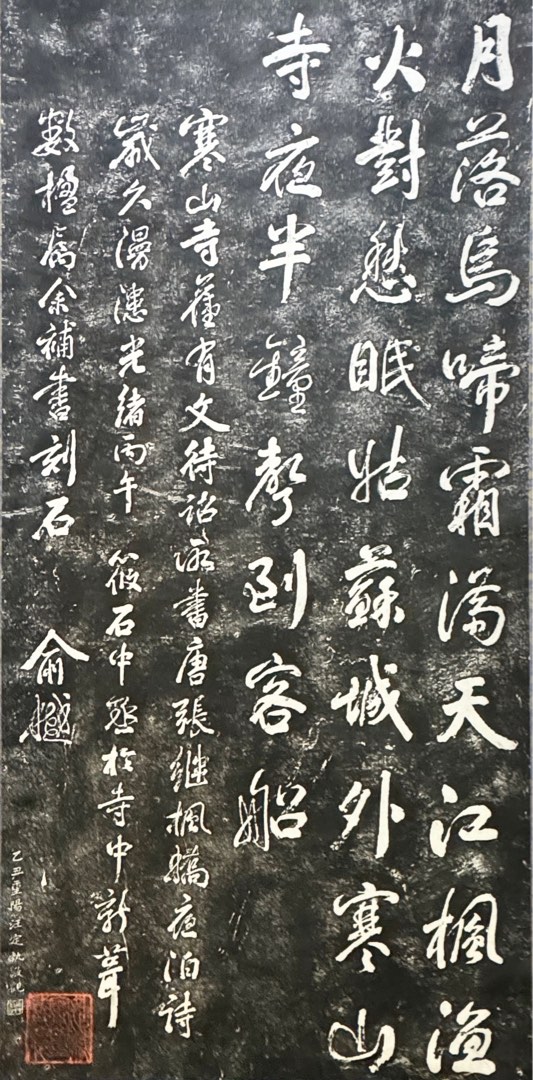 月落烏啼霜满天江楓漁
火對愁眠姑蘇城外寒山
寺夜半鐘聲到客船
寒山寺舊有文待詔所書唐張继楓橋夜泊詩
歲久漫漶光緒丙午筱石中丞於寺中新葺
數楹屬余補書刻石
俞樾
乙丑重陽汪定執